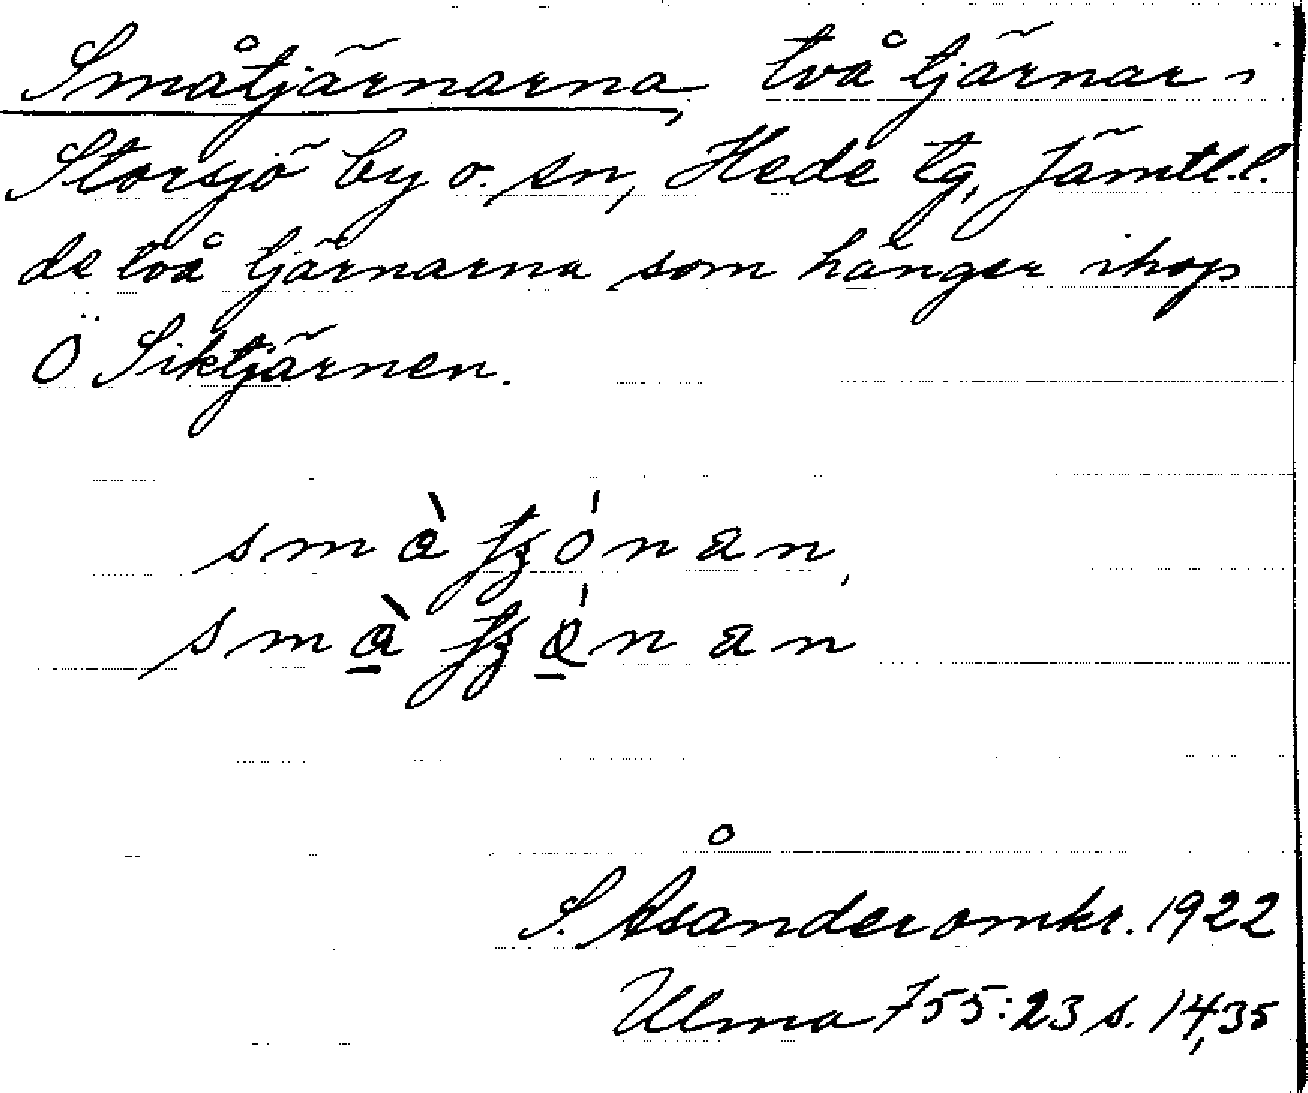 Småtjärnarna, två tjärnar i
Storsjö by o. sn, Hede tg, Jämtl.l.
de två tjärnarna som hänger ihop
Ö Siktjärnen.
S. Åsander omkr. 1922
Ulma 755:23 s. 14, 35